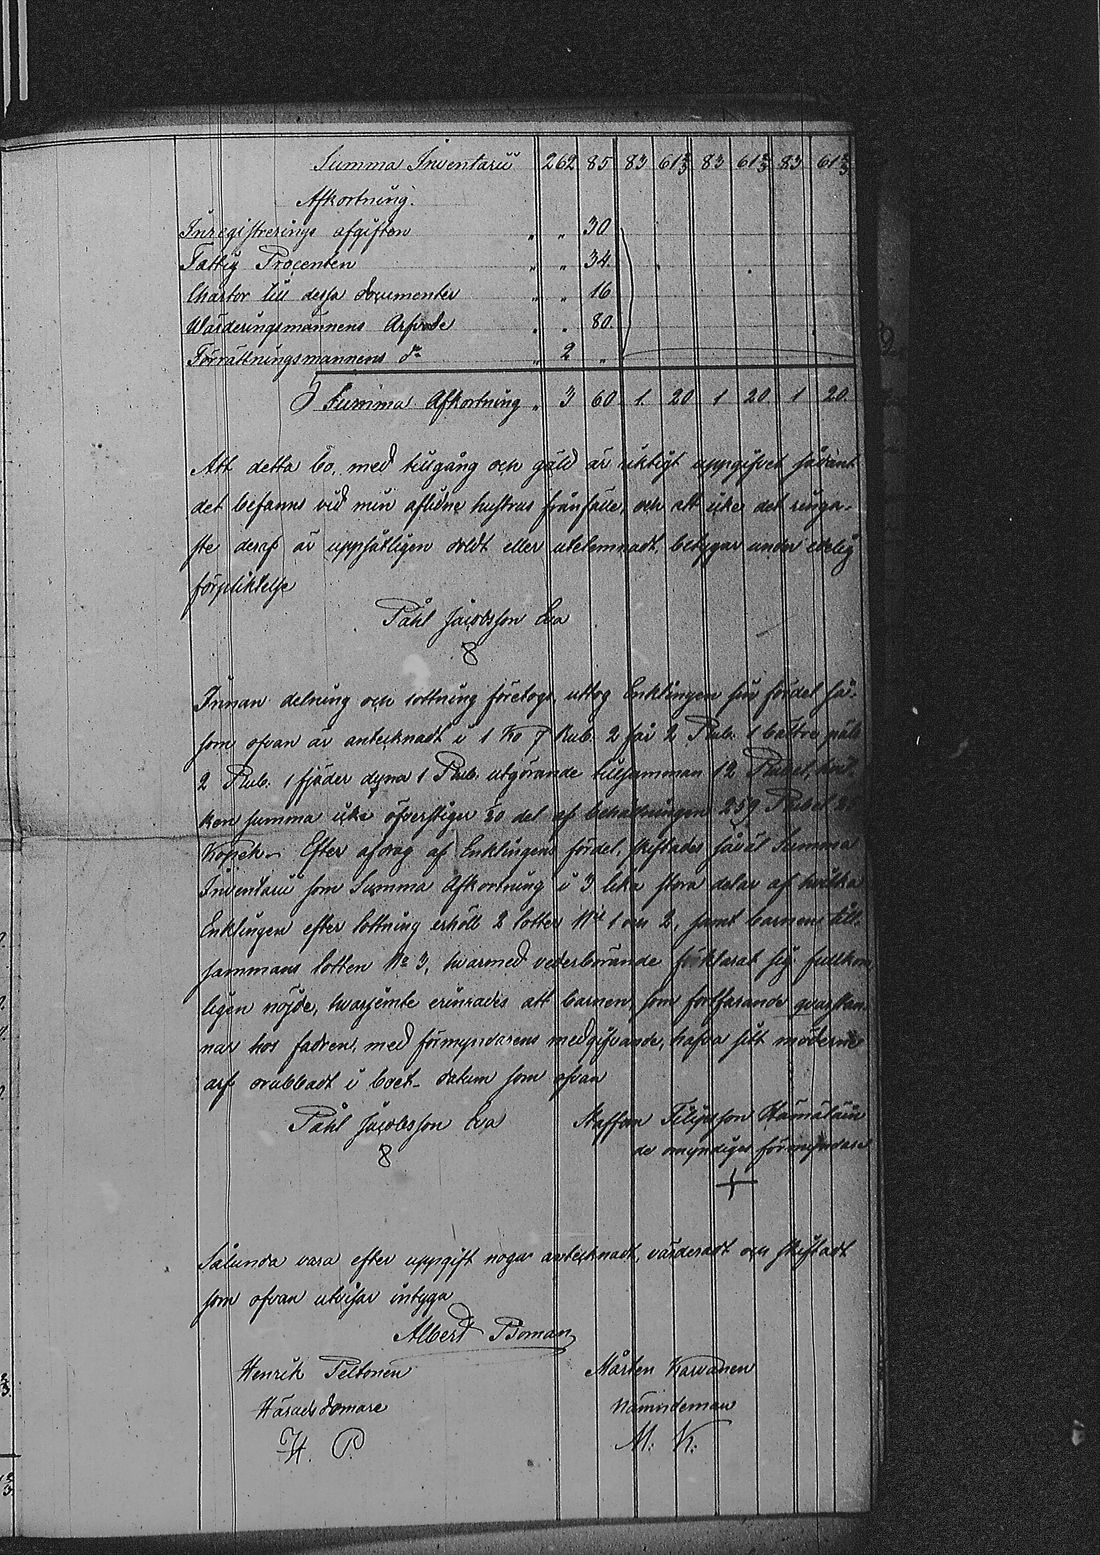 Summa Inventarii 262 85 83 61⅔ 83 61⅔ 83 61⅔
Afkortning.
Inregistrerings afgiften " " 30
Fattig Procenten " " 34
Chartor till dessa documenter " " 16
Wärderingsmännens Arfvode " " 80
Förrättningsmannens do " 2 "
Summa Afkortning " 3 60 1 20 1 20 1 20
Att detta bo, med tillgång och gäld är riktigt uppgifvet sådant
det befanns vid min aflidne hustrus frånfälle, och att icke det ringa-
ste deraf är uppsåtligen doldt eller utelemnadt, betygar under edelig
förpliktelse
Påhl Jacobsson
8
Innan delning och lottning företogs, uttog Enklingen sin fördel så-
som ofvan är antecknadt i 1 Ko 7 Rub. 2 får 2 Rub. 1 bättre päls
2 Rub. 1 fjäder dyna 1 Rub. utgörande tillsamman 12 Rubel, hvil-
ken summa icke öfverstiger 1/20 del af behållningen 259 Rubel 25
Kopek. Efter afdrag af Enklingens fördel, skiftades såväl Summa
Inventarii som Summa Afkortning i 3 lika stora delar af hvilka
Enklingen efter lottning erhöll 2 lotter No 1 och 2, samt barnen till-
sammans lotten No 3, hvarmed vederbörande förklarat sig fullkom
ligen nöjde, hvarjemte erinrades att barnen, som fortfarande qvarstan-
nar hos fadren, med förmyndarens medgifvande, hafva sitt möderne
arf orubbadt i boet. datum som ofvan
Påhl Jacobsson Staffan Filipsson
8 de omyndiges förmyndare
+
Sålunda vara efter uppgift noga antecknadt, värderadt och skiftadt
som ofvan utvisar intyga
Albert Boman
Henrik Peltonen Mårten Karvanen
Häradsdomare Nämndeman
H. P. M. K.